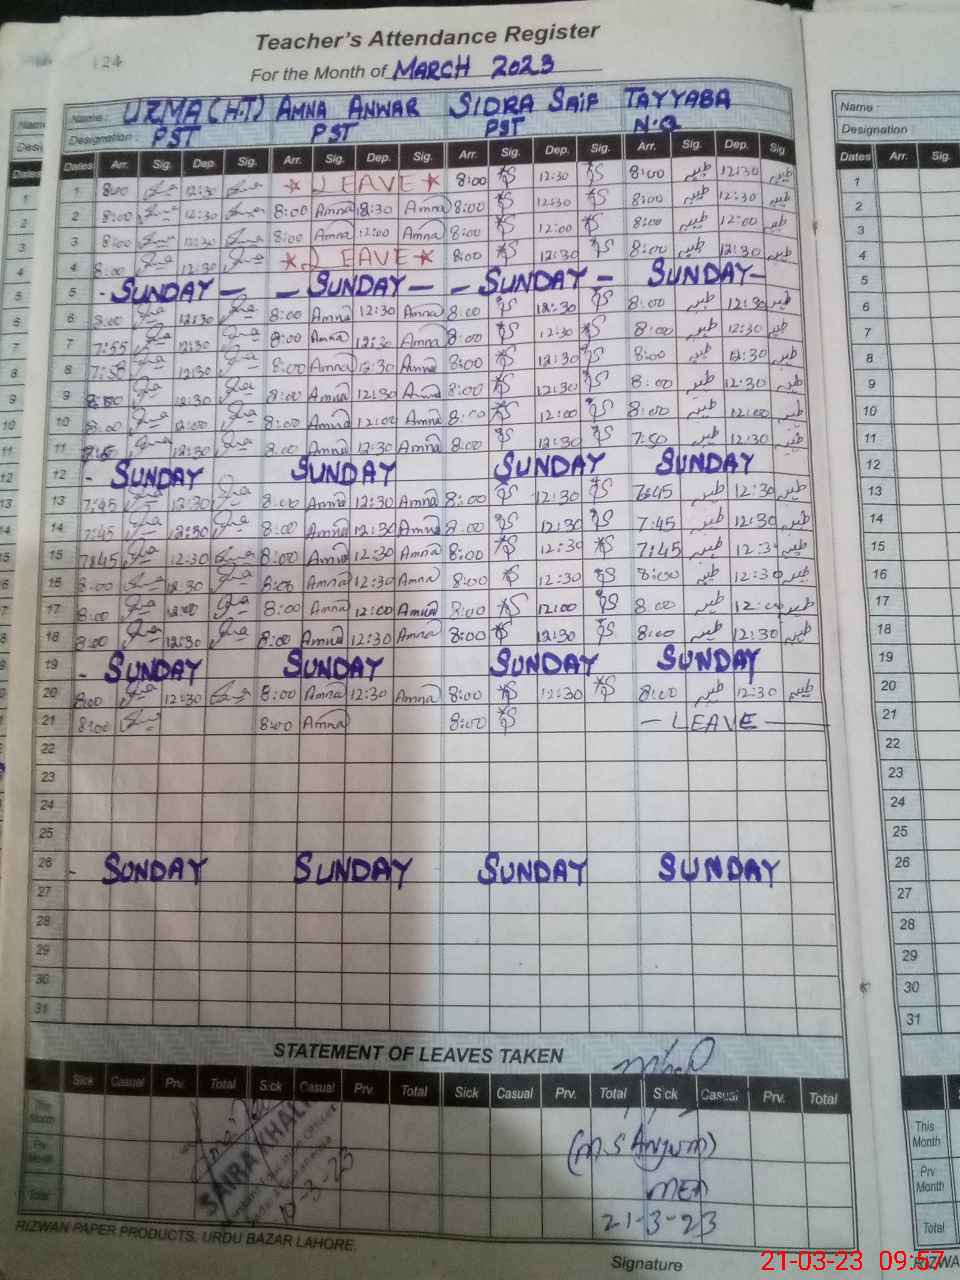 124
Teacher's Attendance Register
For the Month of MARCH 2023
Name : UZMA (H.T) AMNA ANWAR SIDRA SAIF TAYYABA
Designation : PST PST PST N.Q
Dates Arr. Sig. Dep. Sig. Arr. Sig. Dep. Sig. Arr. Sig. Dep. Sig. Arr. Sig. Dep. Sig
1 8:00 12:30 * LEAVE * 8:00 12:30 8:00 طیبہ 12:30 طیبہ
2 8:00 12:30 8:00 Amna 12:30 Amna 8:00 12:30 8:00 طیبہ 12:30 طیبہ
3 8:00 12:30 8:00 Amna 12:00 Amna 8:00 12:00 8:00 طیبہ 12:00 طیبہ
4 8:00 12:30 * LEAVE * 8:00 12:30 8:00 طیبہ 12:30 طیبہ
5 - SUNDAY - - SUNDAY - - SUNDAY - SUNDAY -
6 8:00 12:30 8:00 Amna 12:30 Amna 8:00 12:30 8:00 طیبہ 12:30 طیبہ
7 7:55 12:30 8:00 Amna 12:30 Amna 8:00 12:30 8:00 طیبہ 12:30 طیبہ
8 7:58 12:30 8:00 Amna 12:30 Amna 8:00 12:30 8:00 طیبہ 12:30 طیبہ
9 12:30 8:00 Amna 12:30 Amna 8:00 12:30 8:00 طیبہ 12:30 طیبہ
10 8:00 12:00 8:00 Amna 12:00 Amna 8:00 12:00 8:00 طیبہ 12:00 طیبہ
11 12:30 8:00 Amna 12:30 Amna 8:00 12:30 7:50 طیبہ 12:30 طیبہ
12 - SUNDAY SUNDAY SUNDAY SUNDAY
13 7:45 12:30 8:00 Amna 12:30 Amna 8:00 12:30 7:45 طیبہ 12:30 طیبہ
14 7:45 12:30 8:00 Amna 12:30 Amna 8:00 12:30 7:45 طیبہ 12:30 طیبہ
15 7:45 12:30 8:00 Amna 12:30 Amna 8:00 12:30 7:45 طیبہ 12:30 طیبہ
16 8:00 12:30 8:00 Amna 12:30 Amna 8:00 12:30 8:00 طیبہ 12:30 طیبہ
17 8:00 12:00 8:00 Amna 12:00 Amna 8:00 12:00 8:00 طیبہ 12:00 طیبہ
18 8:00 12:30 8:00 Amna 12:30 Amna 8:00 12:30 8:00 طیبہ 12:30 طیبہ
19 - SUNDAY SUNDAY SUNDAY SUNDAY
20 8:00 12:30 8:00 Amna 12:30 Amna 8:00 12:30 8:00 طیبہ 12:30 طیبہ
21 8:00 8:00 Amna 8:00 - LEAVE -
22
23
24
25
26 - SUNDAY SUNDAY SUNDAY SUNDAY
27
28
29
30
31
STATEMENT OF LEAVES TAKEN
Sick Casual Prv. Total Sick Casual Prv. Total Sick Casual Prv. Total Sick Casual Prv. Total
This Month
Prv Month
Total
SAIRA KHALI
Officer
(M.S Anjum)
MEA
21-3-23
RIZWAN PAPER PRODUCTS, URDU BAZAR LAHORE.
Signature
Name :
Designation :
Dates Arr. Sig.
1
2
3
4
5
6
7
8
9
10
11
12
13
14
15
16
17
18
19
20
21
22
23
24
25
26
27
28
29
30
31
Sick
This Month
Prv Month
Total
RIZWA
21-03-23 09:57